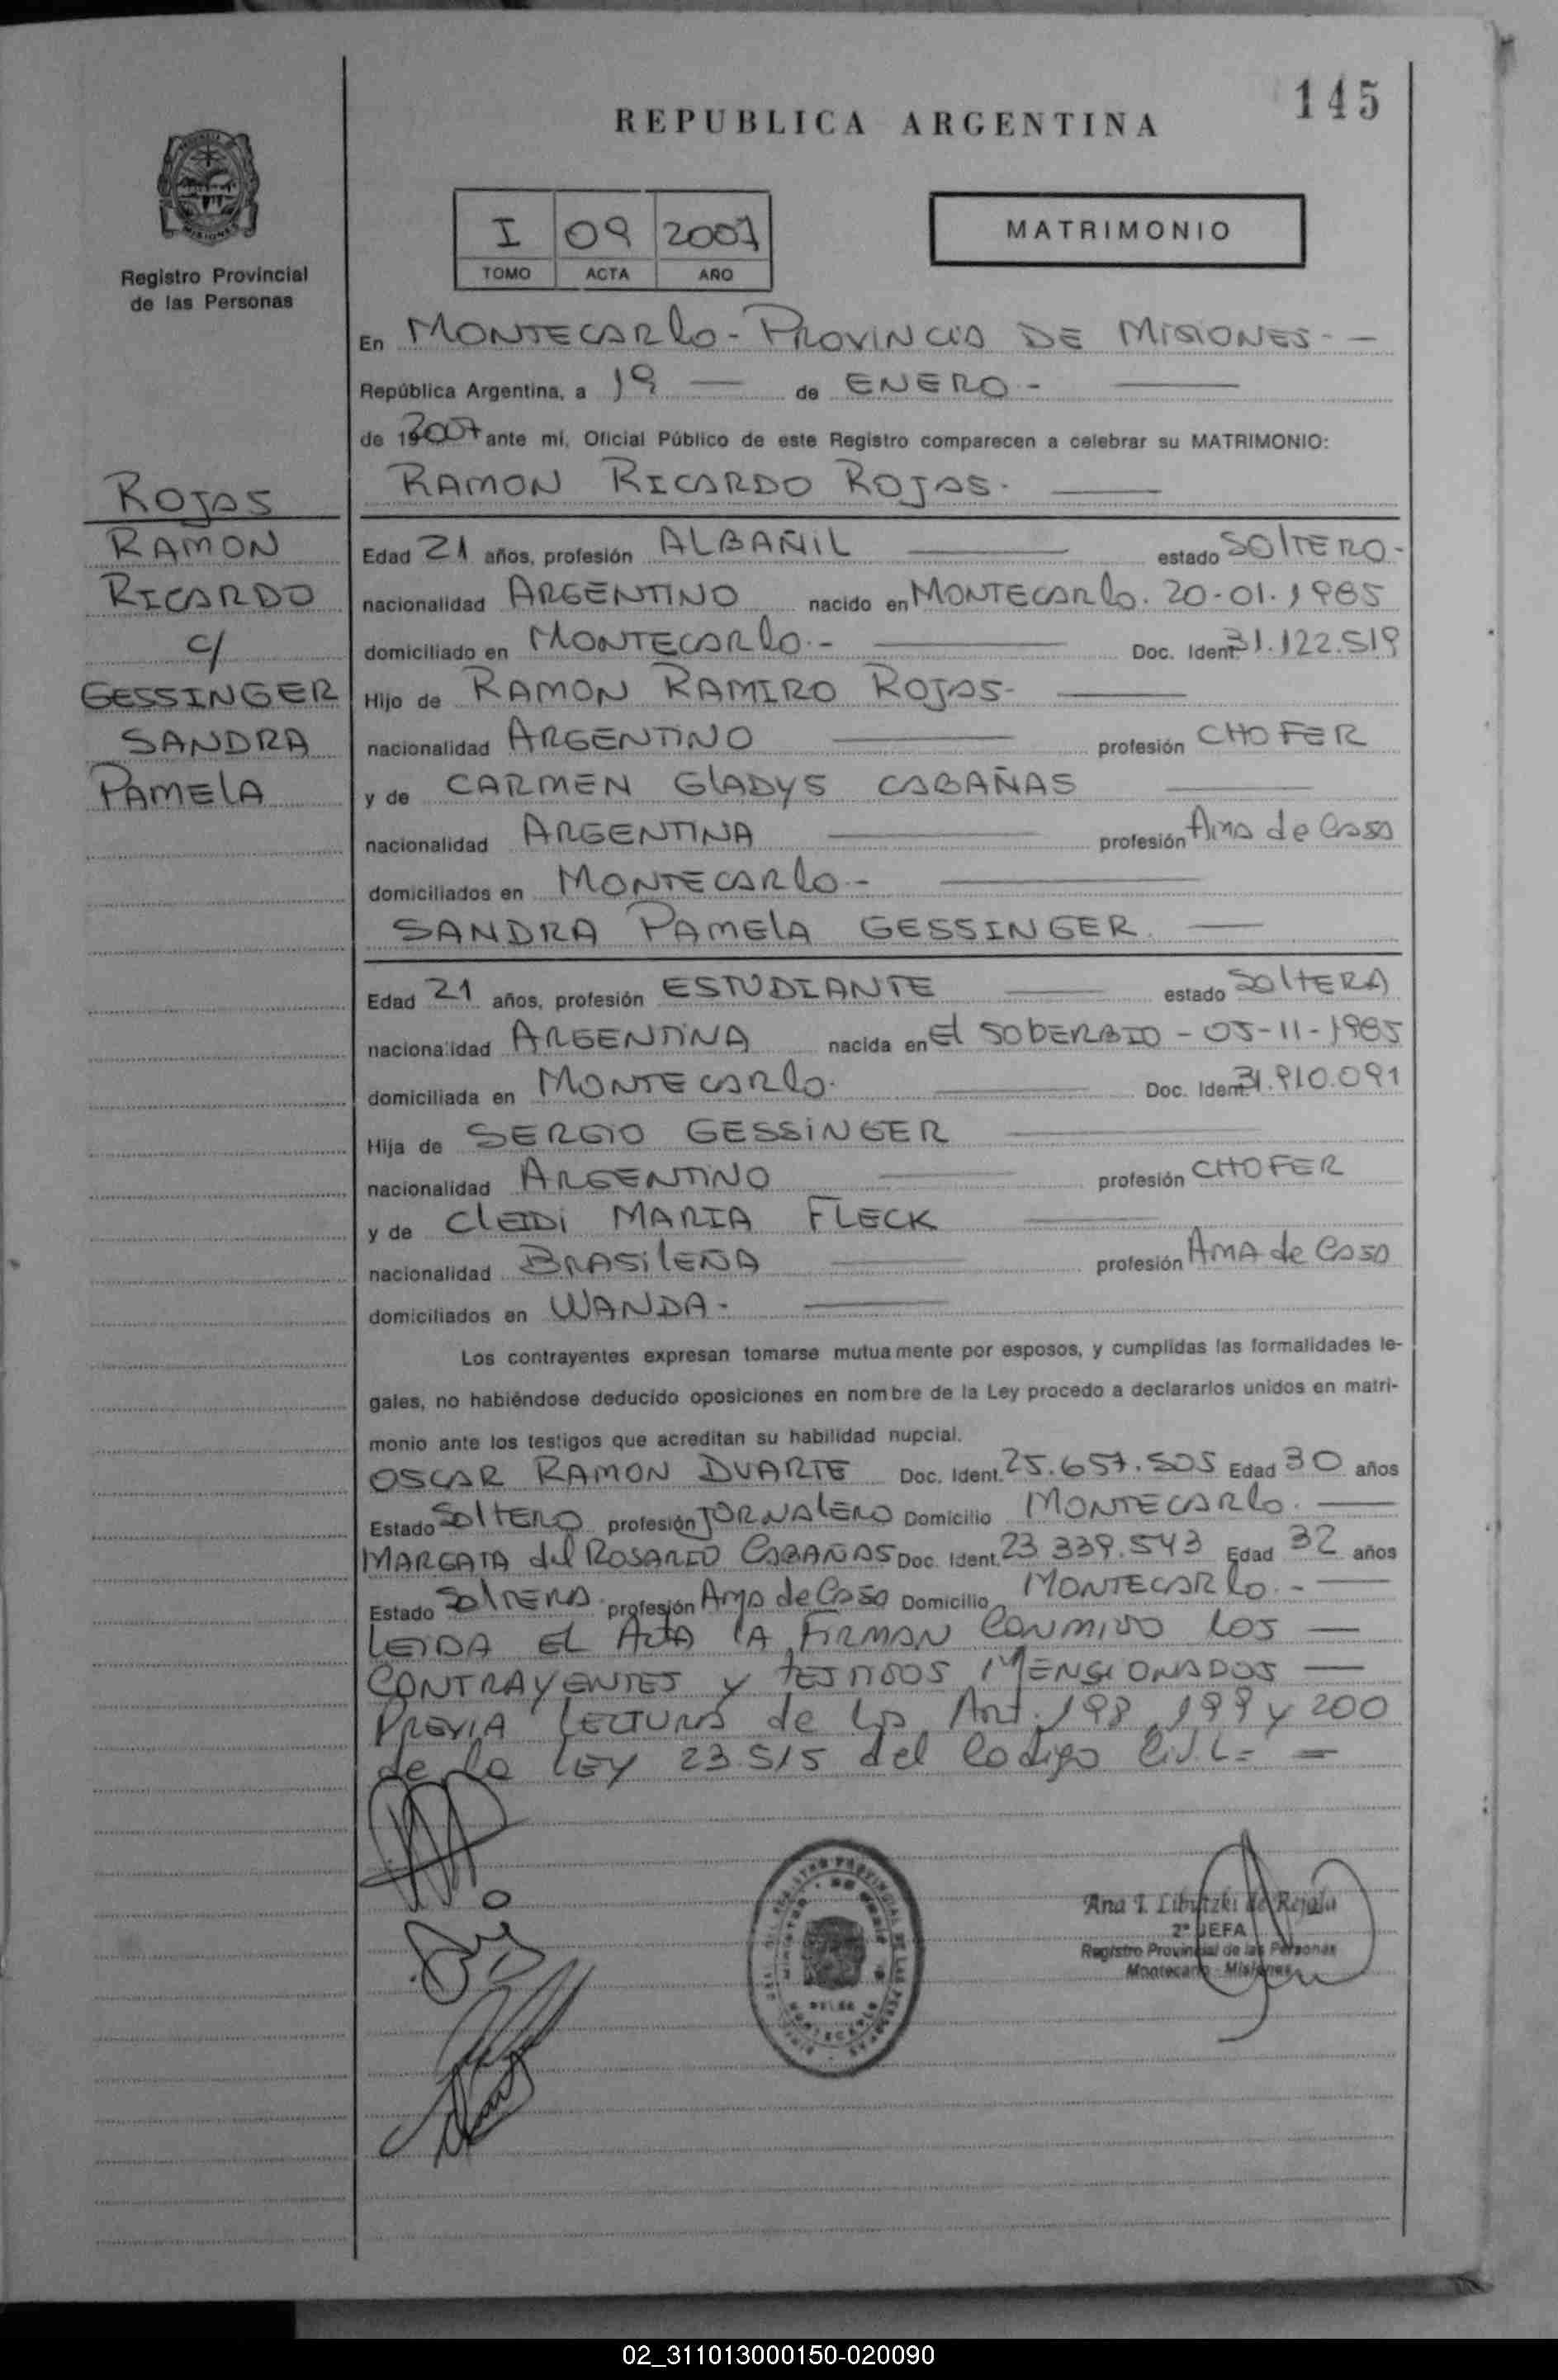 145
REPUBLICA ARGENTINA
Registro Provincial
de las Personas
I 09 2007
TOMO ACTA AÑO
MATRIMONIO
En MONTECARlo - PROVINCIA DE MISIONES - —
República Argentina, a 19 — de ENERO - —
de 2007 ante mí, Oficial Público de este Registro comparecen a celebrar su MATRIMONIO:
RAMON RICARDO ROJAS. —
ROJAS
RAMON
RICARDO
c/
GESSINGER
SANDRA
PAMElA
Edad 21 años, profesión ALBAÑIL — estado SOlTERO -
nacionalidad ARGENTINO nacido en MONTECARlo. 20-01-1985
domiciliado en MONTECARlo - — Doc. Ident. 31.122.519
Hijo de RAMON RAMIRO ROJAS - —
nacionalidad ARGENTINO — profesión CHOFER
y de CARMEN GlADYS CABAÑAS —
nacionalidad ARGENTINA — profesión Ama de Casa
domiciliados en MONTECARlo - —
SANDRA PAMElA GESSINGER. —
Edad 21 años, profesión ESTUDIANTE — estado SOlTERA
nacionalidad ARGENTINA nacida en El SOBERBIO - 05-11-1985
domiciliada en MONTECARlo. — Doc. Ident. 31.910.091
Hija de SERGIO GESSINGER —
nacionalidad ARGENTINO — profesión CHOFER
y de ClEIDI MARIA FLECK —
nacionalidad BRASIlEÑA — profesión AMA de Casa
domiciliados en WANDA - —
Los contrayentes expresan tomarse mutuamente por esposos, y cumplidas las formalidades le-
gales, no habiéndose deducido oposiciones en nombre de la Ley procedo a declararlos unidos en matri-
monio ante los testigos que acreditan su habilidad nupcial.
OSCAR RAMON DUARTE Doc. Ident. 25.657.505 Edad 30 años
Estado SOlTERO profesión JORNAlERO Domicilio MONTECARlo. —
MARGATA del ROSARIO CABAÑAS Doc. Ident. 23 339.543 Edad 32 años
Estado SOlTERA profesión Ama de Casa Domicilio MONTECARlo. - —
LEIDA EL ACTA lA FIRMAN CONMIGO lOS —
CONTRAYENTES y TESTIGOS MENCIONADOS —
PREVIA LECTURA de los Art. 198, 199 y 200
de la LEY 23.515 del Codigo Civil = =
Ana I. Libutzki de Rejala
2º JEFA
Registro Provincial de las Personas
Montecarlo - Misiones
02_311013000150-020090